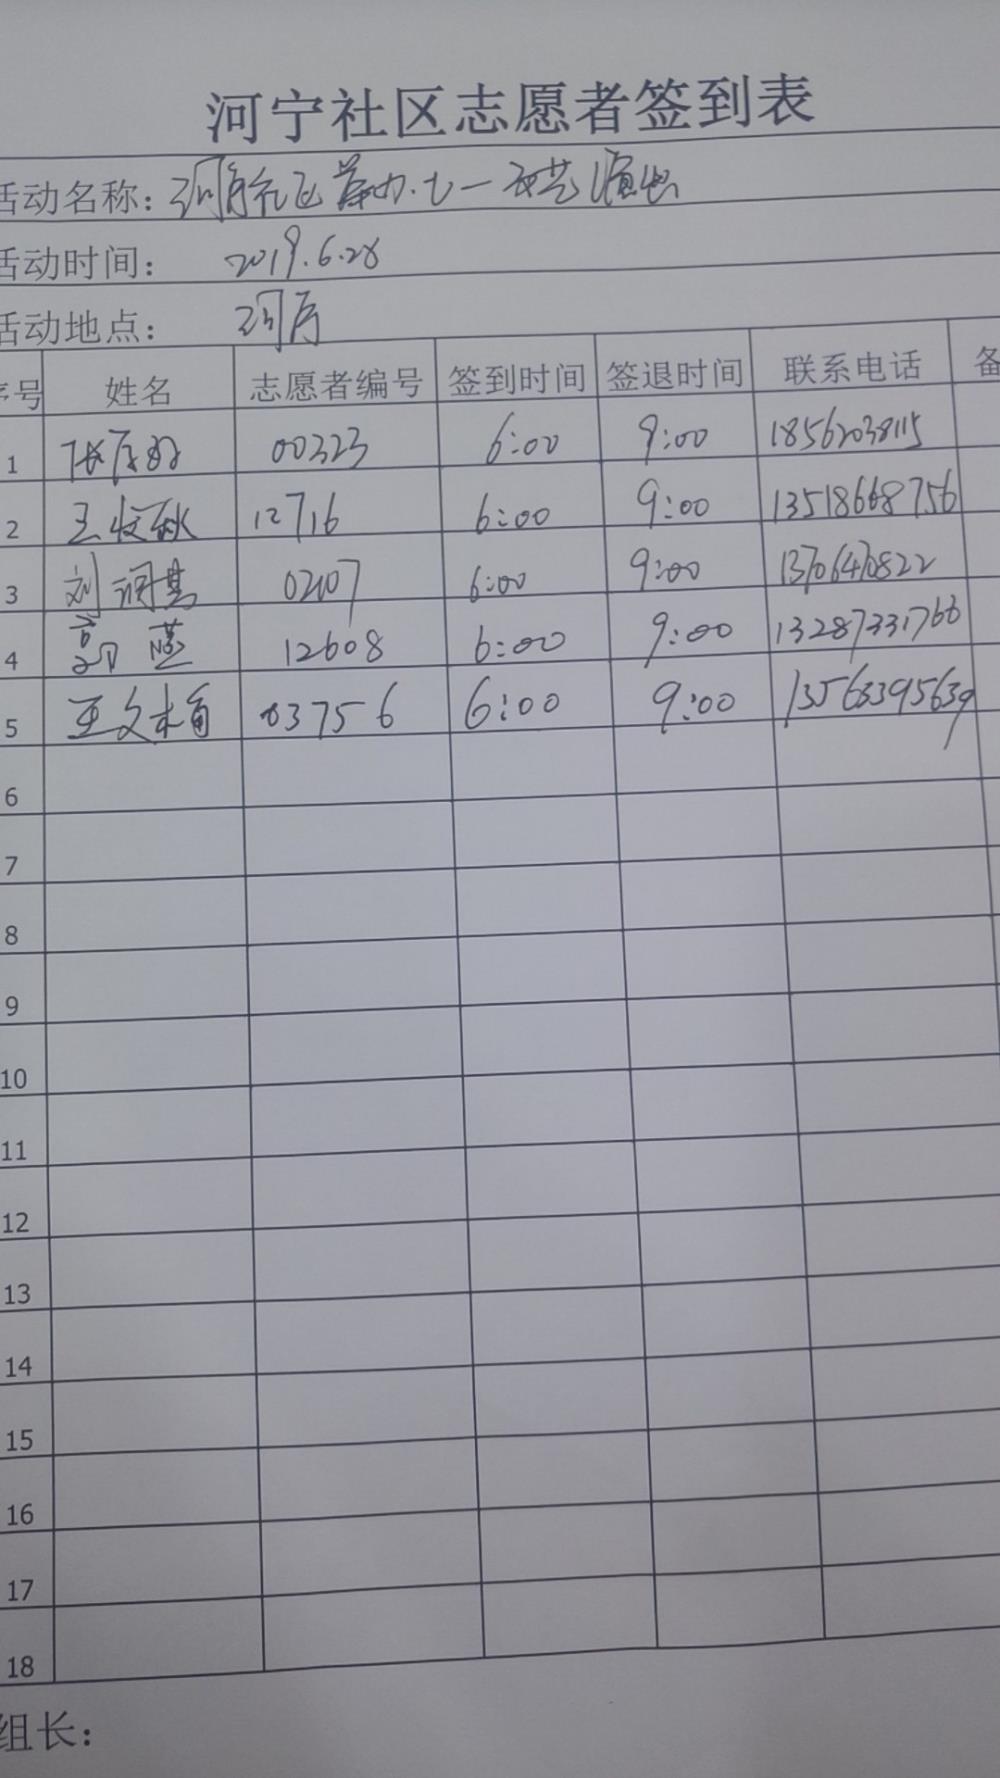 河宁社区志愿者签到表
活动名称：河宁社区举办七一文艺演出
活动时间： 2019.6.28
活动地点： 河宁
序号 姓名 志愿者编号 签到时间 签退时间 联系电话 备
1 00323 6:00 9:00 18562038115
2 王 秋 12716 6:00 9:00 13518668756
3 刘润 02107 6:00 9:00 13706470822
4 12608 6:00 9:00 13287331766
5 王文 03756 6:00 9:00 13563395639
6
7
8
9
10
11
12
13
14
15
16
17
18
组长：